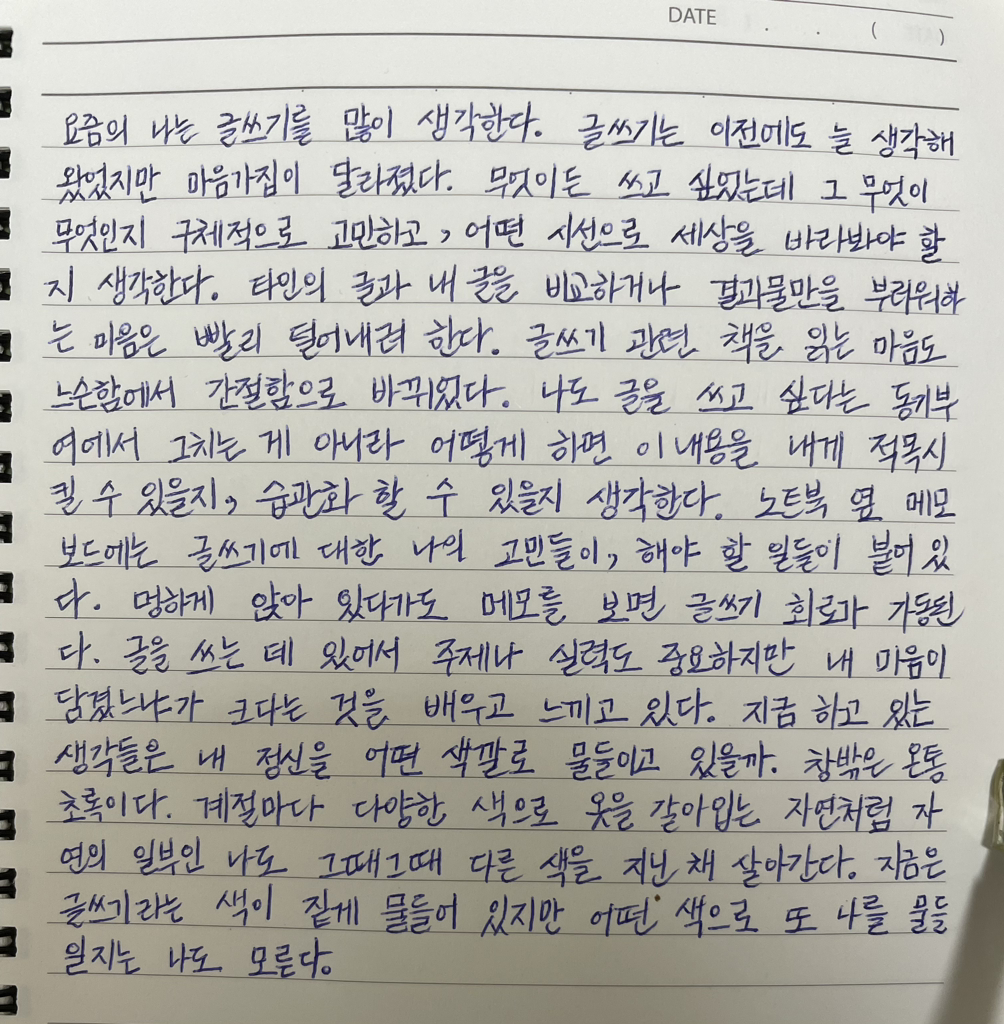 DATE . . ( )
요즘의 나는 글쓰기를 많이 생각한다. 글쓰기는 이전에도 늘 생각해
왔었지만 마음가짐이 달라졌다. 무엇이든 쓰고 싶었는데 그 무엇이
무엇인지 구체적으로 고민하고, 어떤 시선으로 세상을 바라봐야 할
지 생각한다. 타인의 글과 내 글을 비교하거나 결과물만을 부러워하
는 마음은 빨리 덜어내려 한다. 글쓰기 관련 책을 읽는 마음도
느슨함에서 간절함으로 바뀌었다. 나도 글을 쓰고 싶다는 동기부
여에서 그치는 게 아니라 어떻게 하면 이 내용을 내게 적목시
킬 수 있을지, 습관화 할 수 있을지 생각한다. 노트북 옆 메모
보드에는 글쓰기에 대한 나의 고민들이, 해야 할 일들이 붙어 있
다. 멍하게 앉아 있다가도 메모를 보면 글쓰기 회로가 가동된
다. 글을 쓰는 데 있어서 주제나 실력도 중요하지만 내 마음이
담겼느냐가 크다는 것을 배우고 느끼고 있다. 지금 하고 있는
생각들은 내 정신을 어떤 색깔로 물들이고 있을까. 창밖은 온통
초록이다. 계절마다 다양한 색으로 옷을 갈아입는 자연처럼 자
연의 일부인 나도 그때그때 다른 색을 지닌 채 살아간다. 지금은
글쓰기라는 색이 짙게 물들어 있지만 어떤 색으로 또 나를 물들
일지는 나도 모른다.